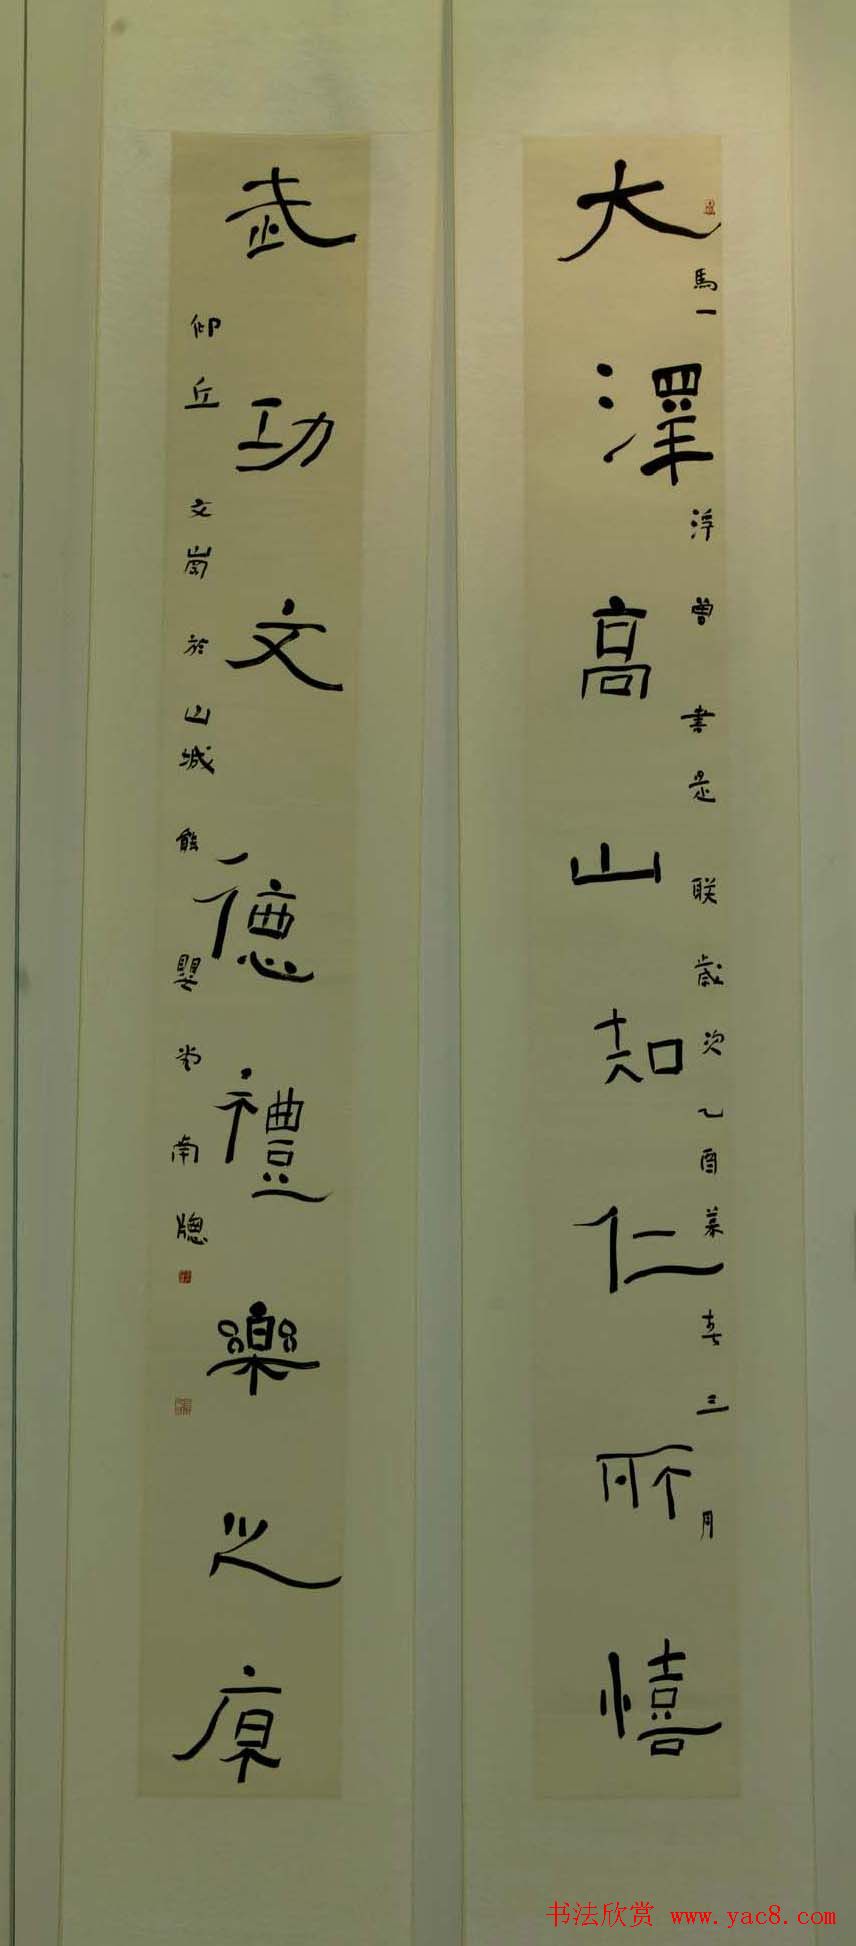 大澤高山知仁所憘
馬一浮曾書是联歲次乙酉莫春三月
武功文德禮樂之原
仰丘文崗於山城能嬰堂南牕
书法欣赏 www.yac8.com